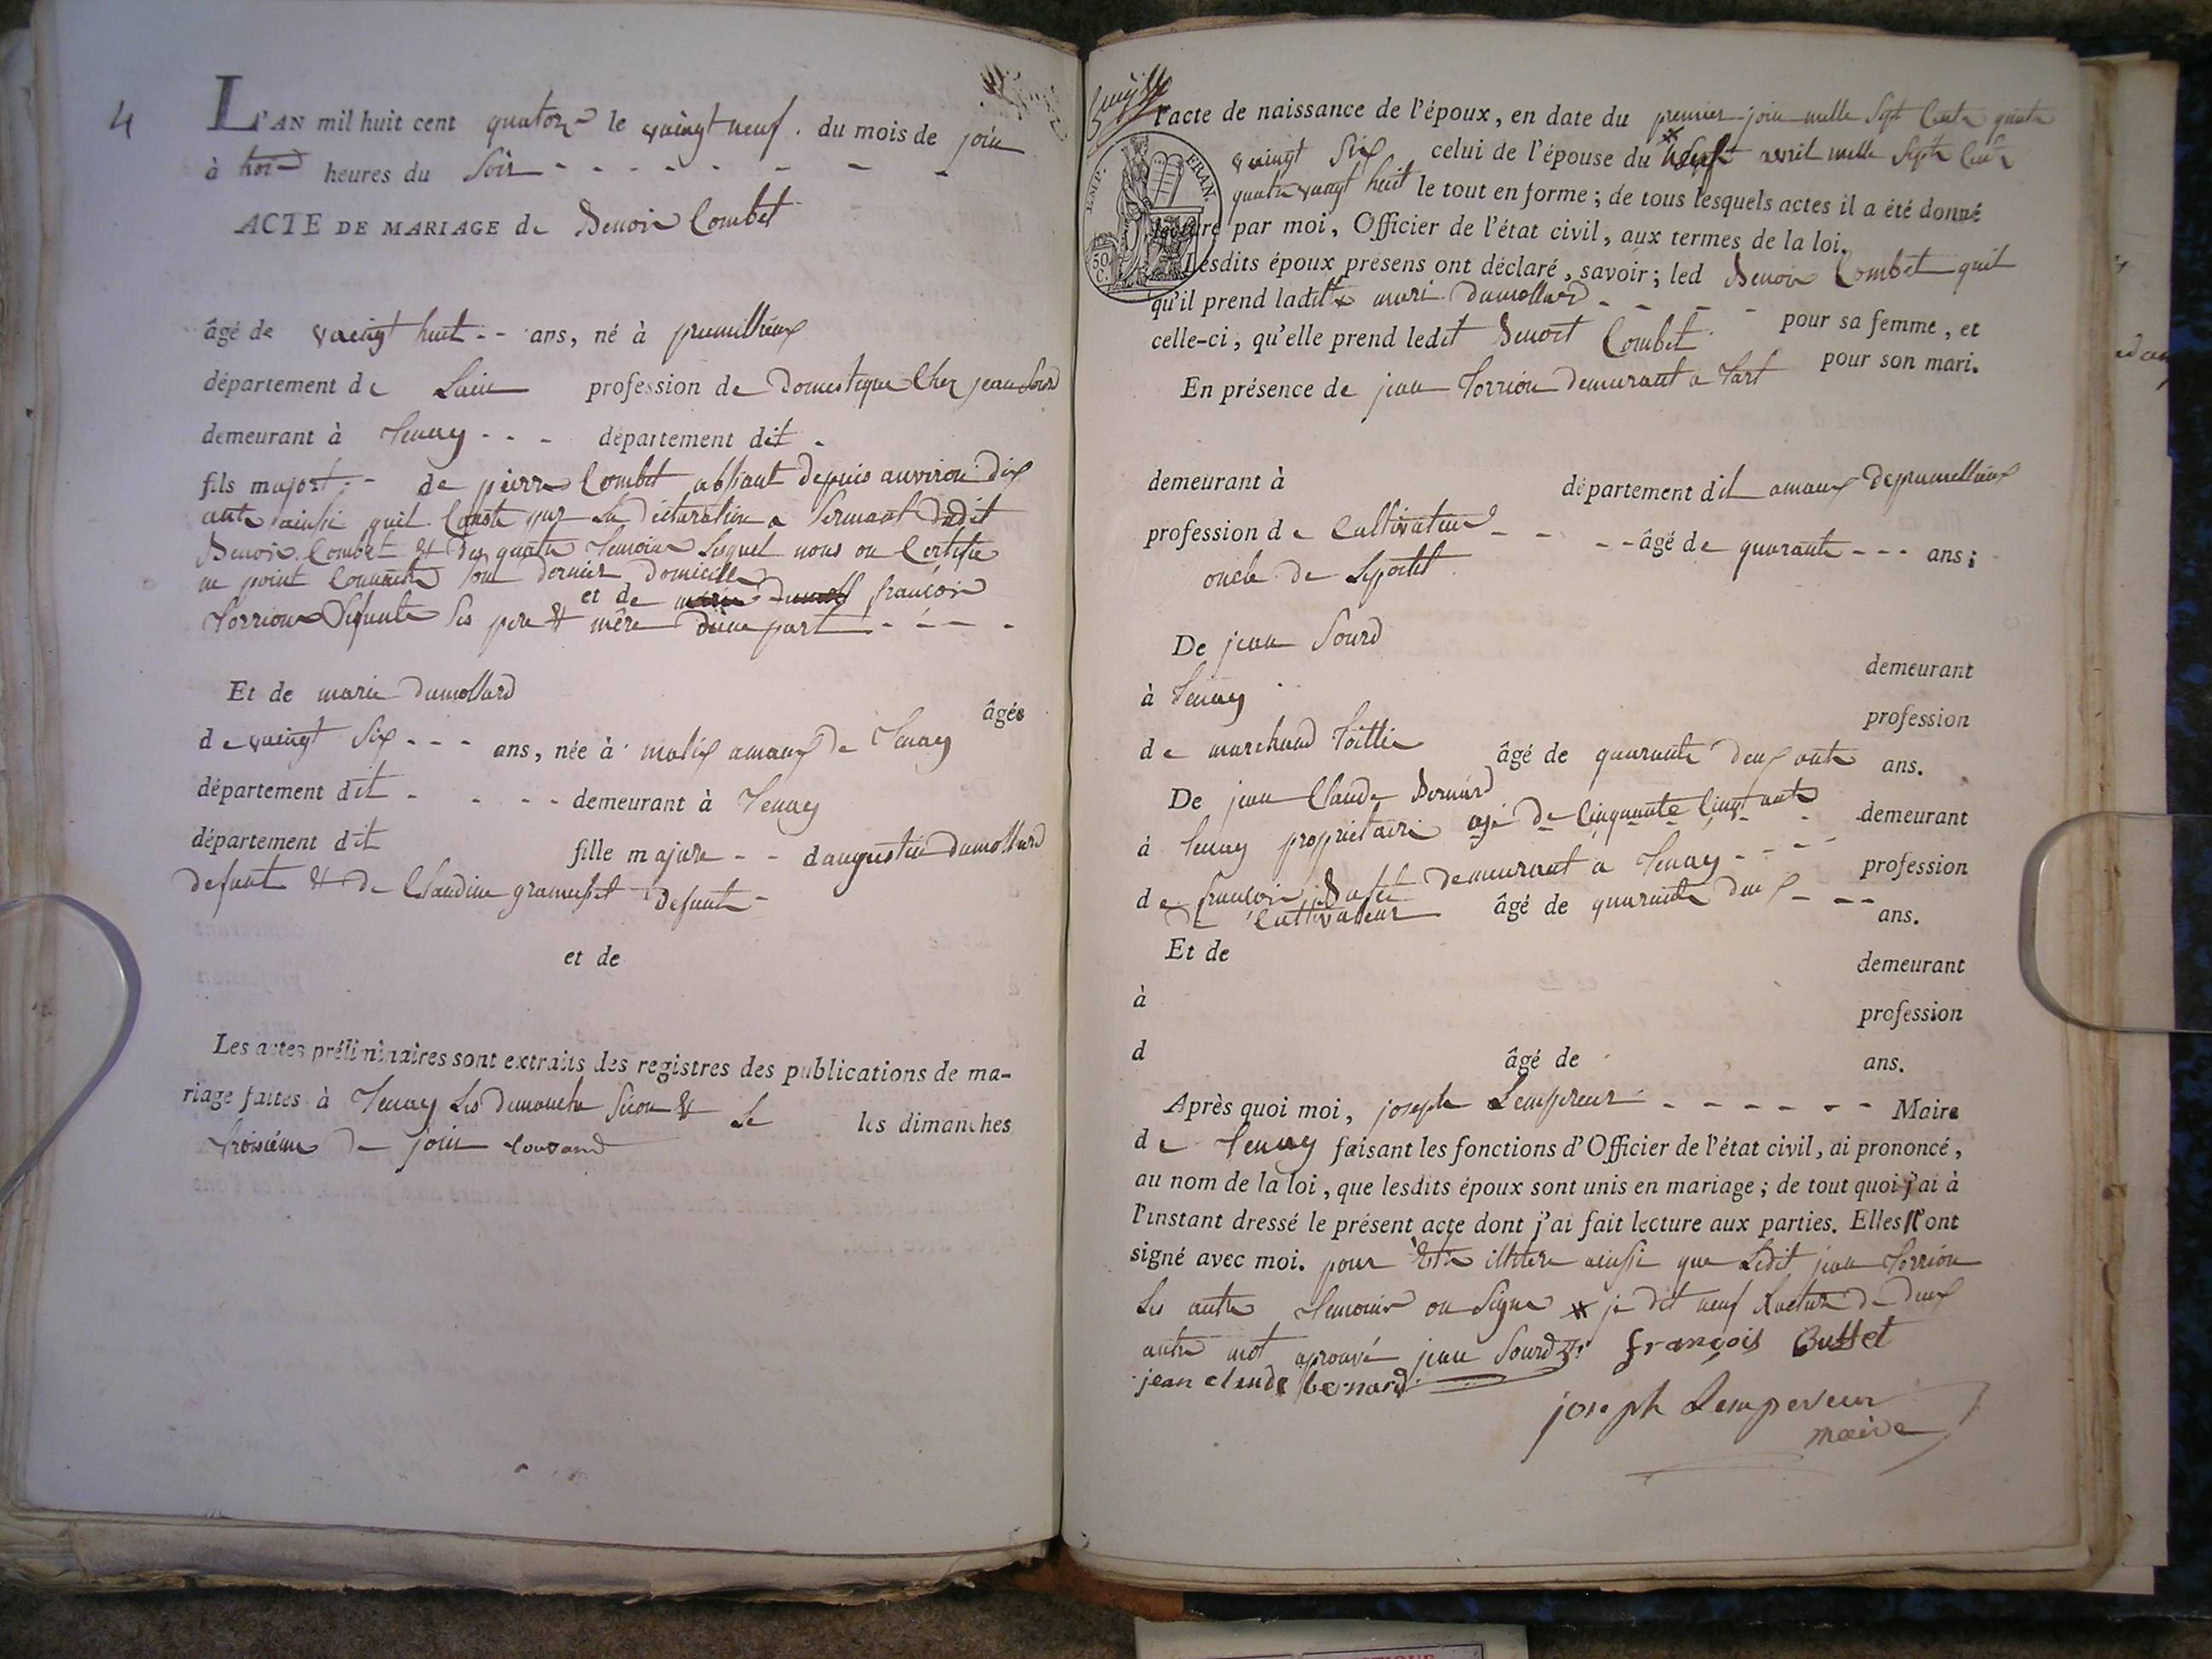 4
L'AN mil huit cent quatorze le vaingt neuf . du mois de join
à trois heures du Soir
ACTE DE MARIAGE de Benoir Combet
âgé de vaingt huit ans, né à prumillieux
département de Lain profession de Domestique Chez jean Sourd
demeurant à Tenay département dit
fils majort de pierre Combet absant depuis anviron dix
ants ainsi quil Conste par La déclaration a Sermant dudit
Benoir Combet et des quatre Temoins Lesquel nous on Certifie
ne point Connaitre Son dernier Domicille
et de françoise
Torrion Défunte Ses pere et mère d'une part
Et de marie dumollard
âgée
de vaingt Six ans, née à malix amaux de Tenay
département dit demeurant à Tenay
département dit fille majure daugustin dumollard
defunt et de Claudine defunte
et de
Les actes préliminaires sont extraits des registres des publications de ma-
riage faites à Tenay Les dimanche Secon et Le les dimanches
troisième de join courand
l'acte de naissance de l'époux, en date du premier join mille Sept Cents quatre
vaingt Six celui de l'épouse du avril mille Septs Cents
quatre vaingt huit le tout en forme ; de tous lesquels actes il a été donné
lecture par moi, Officier de l'état civil, aux termes de la loi.
EMP. FRAN.
50 C.
Lesdits époux présens ont déclaré, savoir ; led Benoir Combet quil
qu'il prend laditte marie dumollard
pour sa femme, et
celle-ci, qu'elle prend ledit Benoit Combet
pour son mari.
En présence de jean Torrion demurant a Tart
demeurant à département dit amaux deprumellieux
profession de Cultivateur âgé de quarante ans ;
oncle de Lepoux
De jean Sourd
demeurant
à Tenay
profession
de marchand Toillie âgé de quarante deux ants ans.
De jean Claude Bernard
demeurant
à Tenay propriétaire agé de Cinquante Cinq ants
profession
de françois Buffet demeurant a Tenay
Cultivateur âgé de quarante deux ans.
Et de
demeurant
à
profession
d âgé de ans.
Après quoi moi, joseph Lempereur Maire
de Tenay faisant les fonctions d'Officier de l'état civil, ai prononcé,
au nom de la loi, que lesdits époux sont unis en mariage ; de tout quoi j'ai à
l'instant dressé le présent acte dont j'ai fait lecture aux parties. Elles n'ont
signé avec moi. pour être illitere ainsi que Ledit jean Torrion
Les autre Temoins on Signe je dit neuf Rature de deux
autre mot aprouvé jean Sourd françois Buffet
jean claude bernard
joseph Lempereur
maire